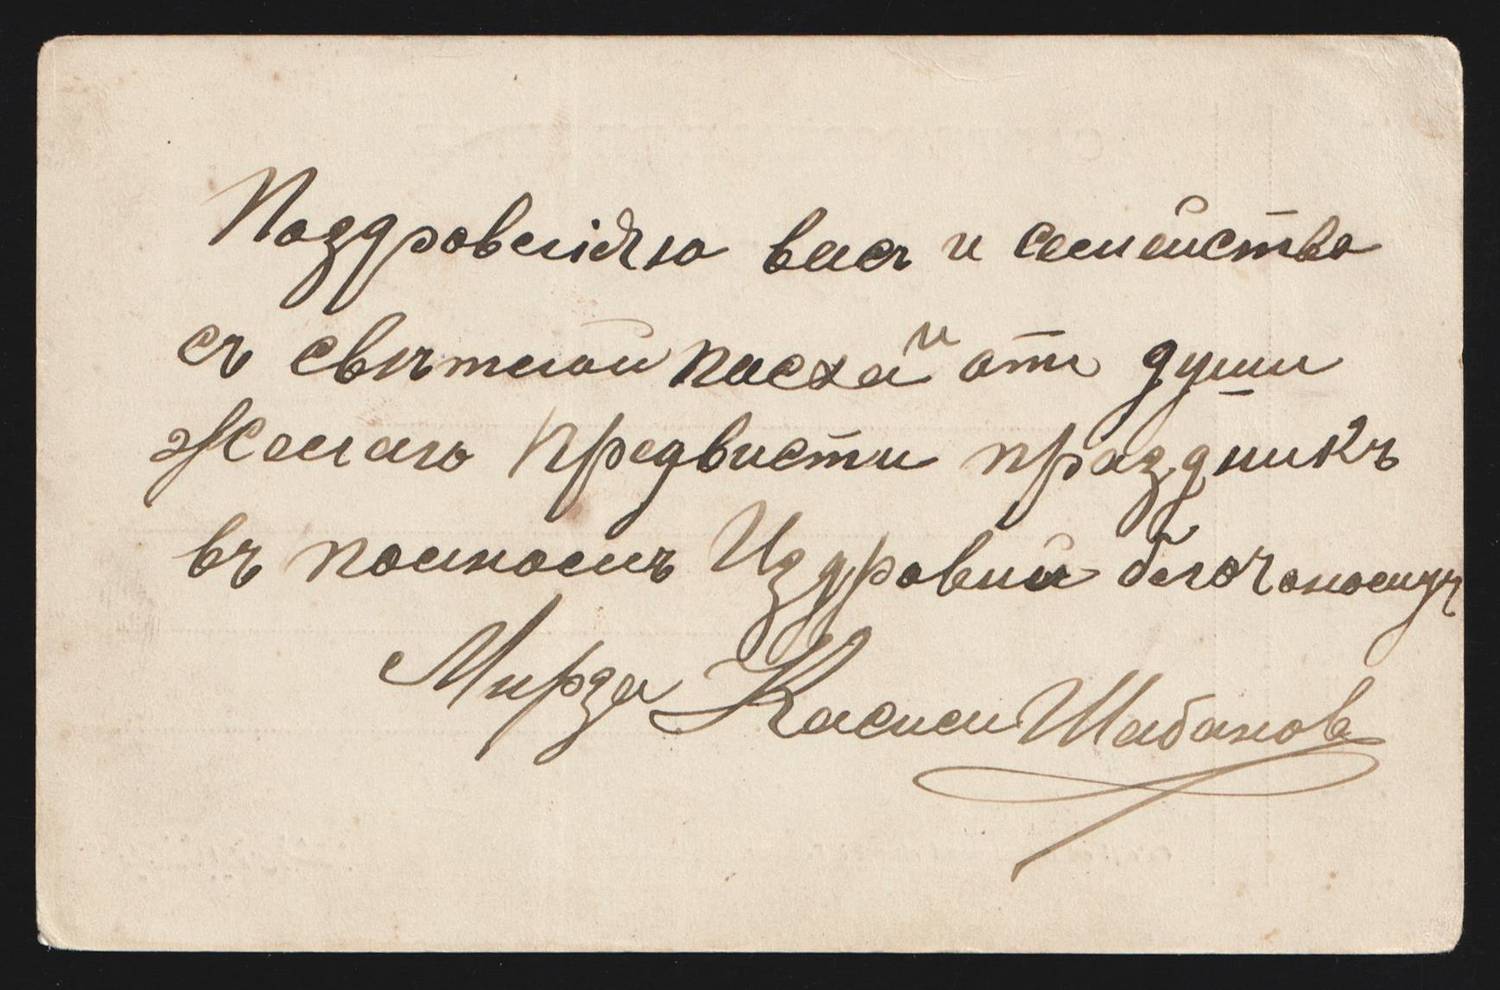 Поздровляю вась и семейство
съ светлой пасхай отъ души
желаю предвисти праздникъ
въ полномъ Издровии
Мирза Касим Шабанов